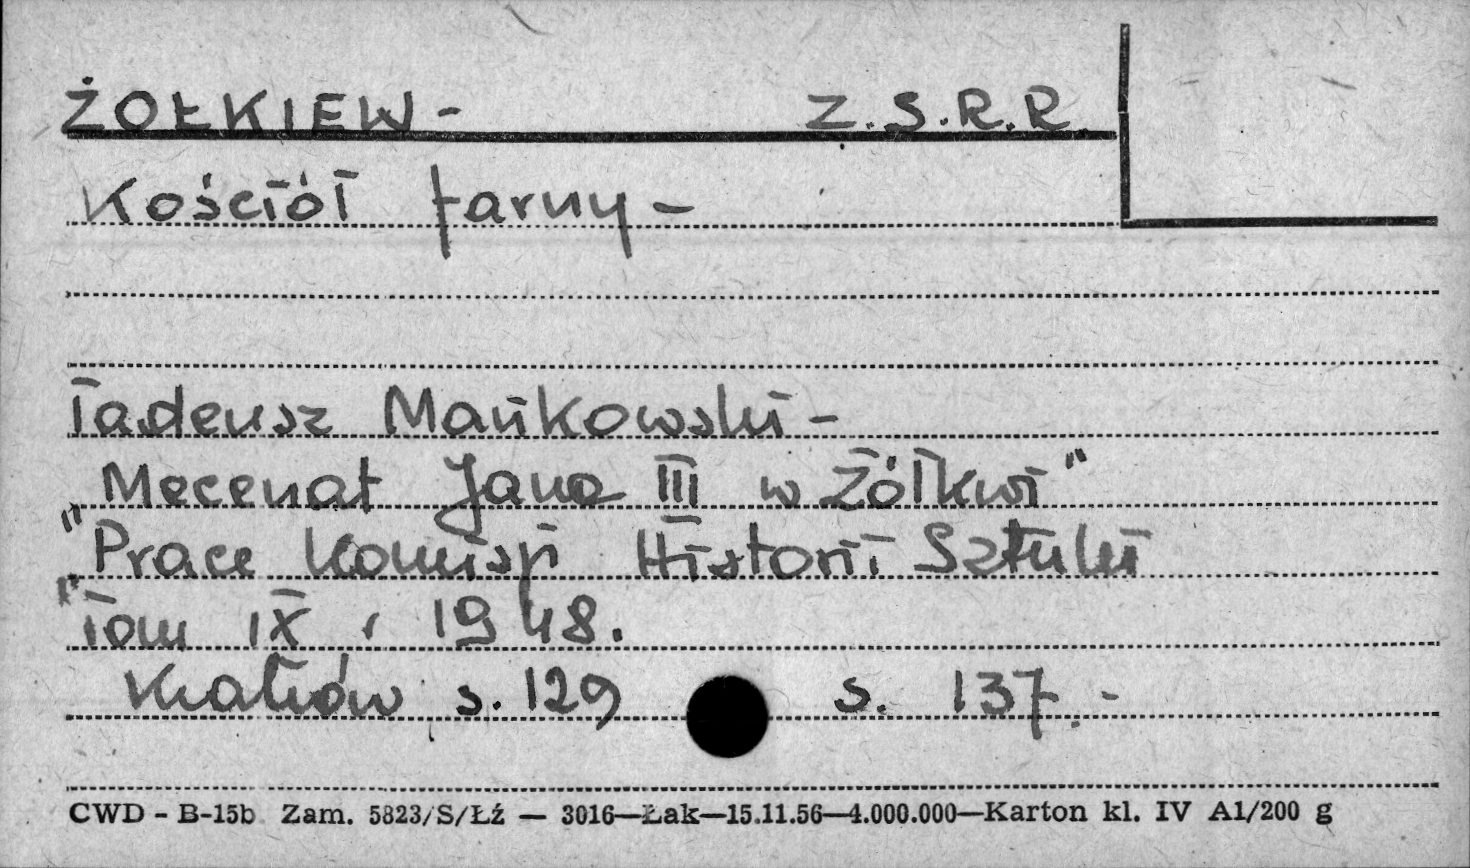 ŻOŁKIEW - Z.S.R.R.
Kościół farny -
Tadeusz Mańkowski -
„Mecenat Jana III w Żółkwi"
"Prace Komisji Historii Sztuki
"Tom IX, 1948.
Kraków s. 129 s. 137. -
CWD - B-15b Zam. 5823/S/Łź — 3016—Łak—15.11.56—4.000.000—Karton kl. IV A1/200 g